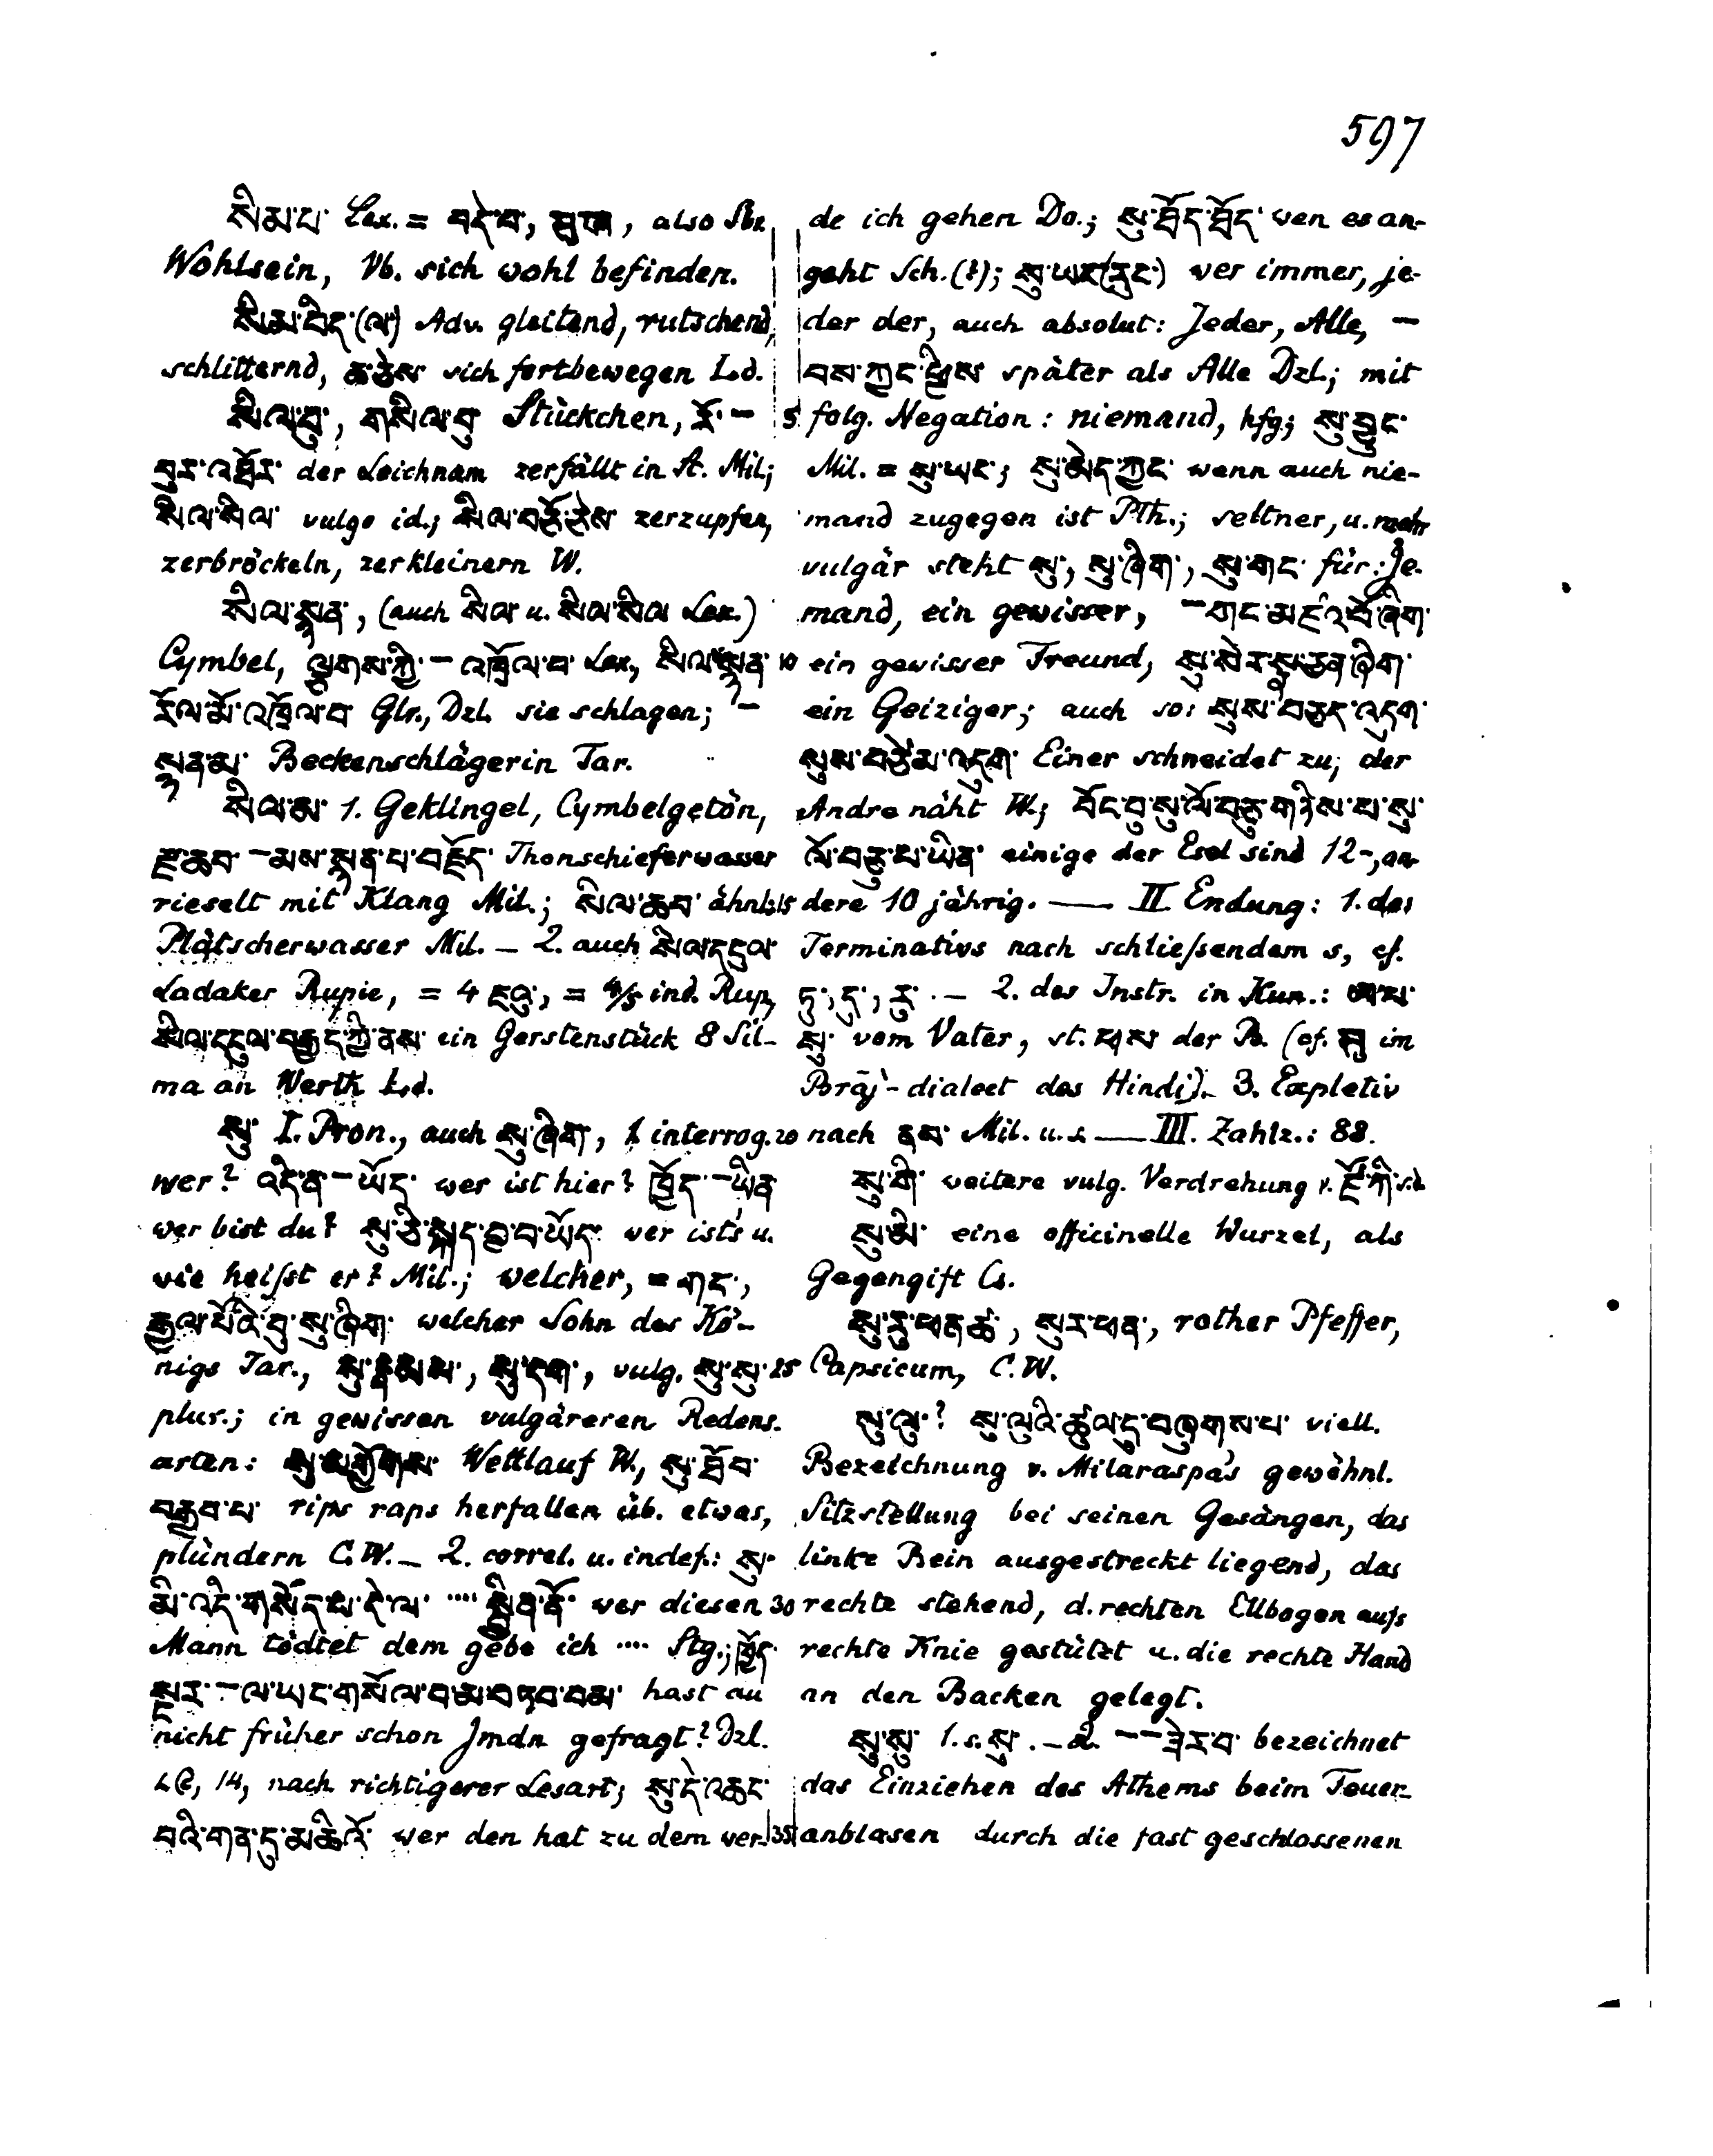 597
སིམ་པ་ Lex. = བདེ་བ་, also Sbz
Wohlsein, Vb. sich wohl befinden.
སིམ་བིད་(ལ་) Adv. gleitend, rutschend,
schlitternd, sich fortbewegen Ld.
སིལ་བུ་, གསིལ་བུ་ Stückchen, རོ་ –
བུར་འཐོར་ der Leichnam zerfällt in St. Mil.;
སིལ་སིལ་ vulgo id.; སིལ་བཅོ་ཅེས་ zerzupfen,
zerbröckeln, zerkleinern W.
སིལ་སྙན་, (auch སིལ་ u. སིལ་སིལ་ Lex.)
Cymbel, ལྕགས་ཀྱི་ – འཁྲོལ་བ་ Lex., སིལ་སྙན་ 10
རོལ་མོ་འཁྲོལ་བ་ Glr., Dzl. sie schlagen; –
སྙན་མ་ Beckenschlägerin Tar.
སིལ་མ་ 1. Geklingel, Cymbelgetön,
རྫ་ཆབ་ – མས་སྙན་པ་བརྗོད་ Thonschieferwasser
rieselt mit Klang Mil.; སིལ་ཆབ་ ähnl. 15
Plätscherwasser Mil. – 2. auch སིལ་དངུལ་
Ladaker Rupie, = 4 ཇའུ་, = 4/5 ind. Rup.,
སིལ་དངུལ་བརྒྱད་ཀྱི་ནས་ ein Gerstenstück 8 Sil-
ma an Werth Ld.
སུ་ I. Pron., auch སུ་ཞིག་, 1. interrog. 20
wer? འདི་ན་ – ཡོད་ wer ist hier? ཁྱོད་ – ཡིན་
wer bist du? སུ་ཅི་སྐད་བྱ་བ་ཡོད་ wer ist's u.
wie heißt er? Mil.; welcher, = གང་,
རྒྱལ་པོའི་བུ་སུ་ཞིག་ welcher Sohn des Kö-
nigs Tar., སུ་རྣམས་, སུ་དག་, vulg. སུ་སུ་ 25
plur.; in gewissen vulgäreren Redens-
arten: Wettlauf W., སུ་ཐོབ་
བརྒྱབ་པ་ rips raps herfallen üb. etwas,
plündern C. W. – 2. correl. u. indef.: སུ་
མི་འདི་གསོད་པ་དེ་ལ་ .... སྦྱིན་ནོ་ wer diesen 30
Mann tödtet dem gebe ich .... Stg.; ཁྱོད་
སྔར་ – ལ་ཡང་གསོལ་བ་མ་བཏབ་བམ་ hast du
nicht früher schon Jmdn gefragt? Dzl.
14, nach richtigerer Lesart; སུ་དེ་འཆང་
བའི་གན་དུ་མཆིའོ་ wer den hat zu dem wer- 35
de ich gehen Do.; སུ་ཐོད་ཐོད་ wen es an-
geht Sch. (?); སུ་ཡང་(རུང་) wer immer, je-
der der, auch absolut: Jeder, Alle, –
བས་ཀྱང་ཕྱིས་ später als Alle Dzl.; mit
5 folg. Negation: niemand, hfg; སུ་བྱུང་
Mil. = སུ་ཡང་; སུ་མེད་ཀྱང་ wenn auch nie-
mand zugegen ist Pth.; seltner, u. mehr
vulgär steht སུ་, སུ་ཞིག་, སུ་གང་ für: Je-
mand, ein gewisser, – གང་མཛའ་བོ་ཞིག་
ein gewisser Freund, སུ་སེར་སྣ་ཅན་ཞིག་
ein Geiziger; auch so: སུས་བཅད་འདུག་
སུས་བཙེམ་འདུག་ Einer schneidet zu, der
Andre näht W.; བོང་བུ་སུ་ལོ་བཅུ་གཉིས་པ་སུ་
ལོ་བཅུ་པ་ཡིན་ einige der Esel sind 12-, an-
dere 10 jährig. — II. Endung: 1. des
Terminativs nach schließendem s, cf.
ཏུ་, དུ་, རུ་. – 2. des Instr. in Kun.:
སུ་ vom Vater, st. ཕས་ der B. (cf. im
Brāj-dialect des Hindi). – 3. Expletiv
nach ནས་ Mil. u. a. — III. Zahlz.: 88.
སུ་གི་ weitere vulg. Verdrehung v. ཇོ་ཀི་ s.d.
སུ་མི་ eine officinelle Wurzel, als
Gegengift Cs.
སུ་རུ་ཕན་ཚ་, སུར་ཕན་, rother Pfeffer,
Capsicum, C. W.
སུ་ལུ་? སུ་ལུའི་ཚུལ་དུ་བཞུགས་པ་ viell.
Bezeichnung v. Milaraspa's gewöhnl.
Sitzstellung bei seinen Gesängen, das
linke Bein ausgestreckt liegend, das
rechte stehend, d. rechten Ellbogen aufs
rechte Knie gestützt u. die rechte Hand
an den Backen gelegt.
སུ་སུ་ 1. s. སུ་. – 2. – – ཟེར་བ་ bezeichnet
das Einziehen des Athems beim Feuer-
anblasen durch die fast geschlossenen